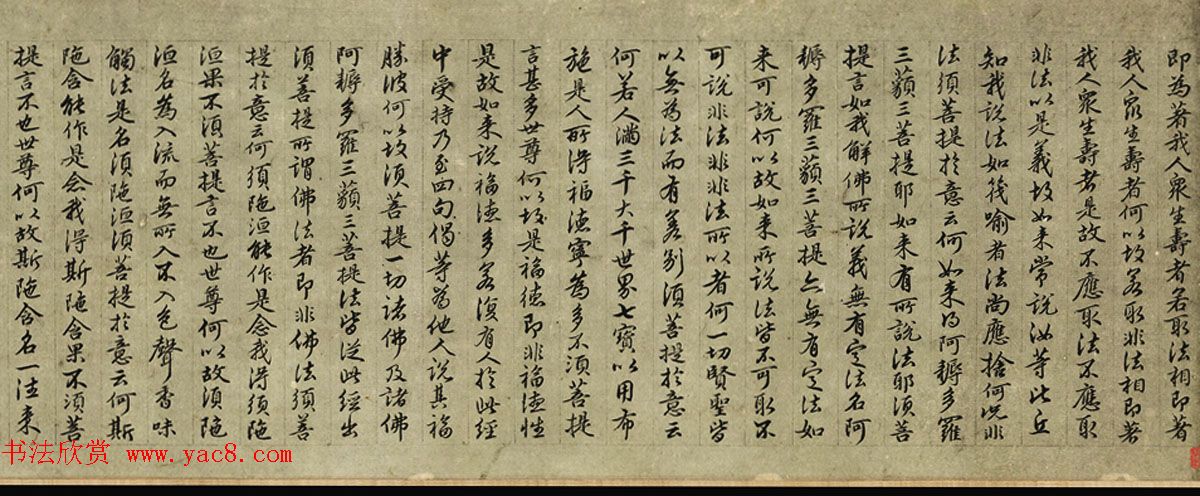 即為著我人衆生壽者若取法相即著
我人衆生壽者何以故若取非法相即著
我人衆生壽者是故不應取法不應取
非法以是義故如来常說汝等比丘
知我說法如筏喻者法尚應捨何况非
法須菩提扵意云何如来得阿耨多羅
三藐三菩提耶如来有所說法耶須菩
提言如我解佛所說義無有定法名阿
耨多羅三藐三菩提亦無有定法如
来可說何以故如来所說法皆不可取不
可說非法非非法所以者何一切賢聖皆
以無為法而有差别須菩提扵意云
何若人滿三千大千世界七寶以用布
施是人所得福德寧為多不須菩提
言甚多世尊何以故是福德即非福德性
是故如来說福德多若復有人扵此經
中受持乃至四句偈等為他人說其福
勝彼何以故須菩提一切諸佛及諸佛
阿耨多羅三藐三菩提法皆從此經出
須菩提所謂佛法者即非佛法須菩
提扵意云何須陁洹能作是念我得須陁
洹果不須菩提言不也世尊何以故須陁
洹名為入流而無所入不入色聲香味
觸法是名須陁洹須菩提扵意云何斯
陁含能作是念我得斯陁含果不須菩
提言不也世尊何以故斯陁含名一往来
书法欣赏 www.yac8.com